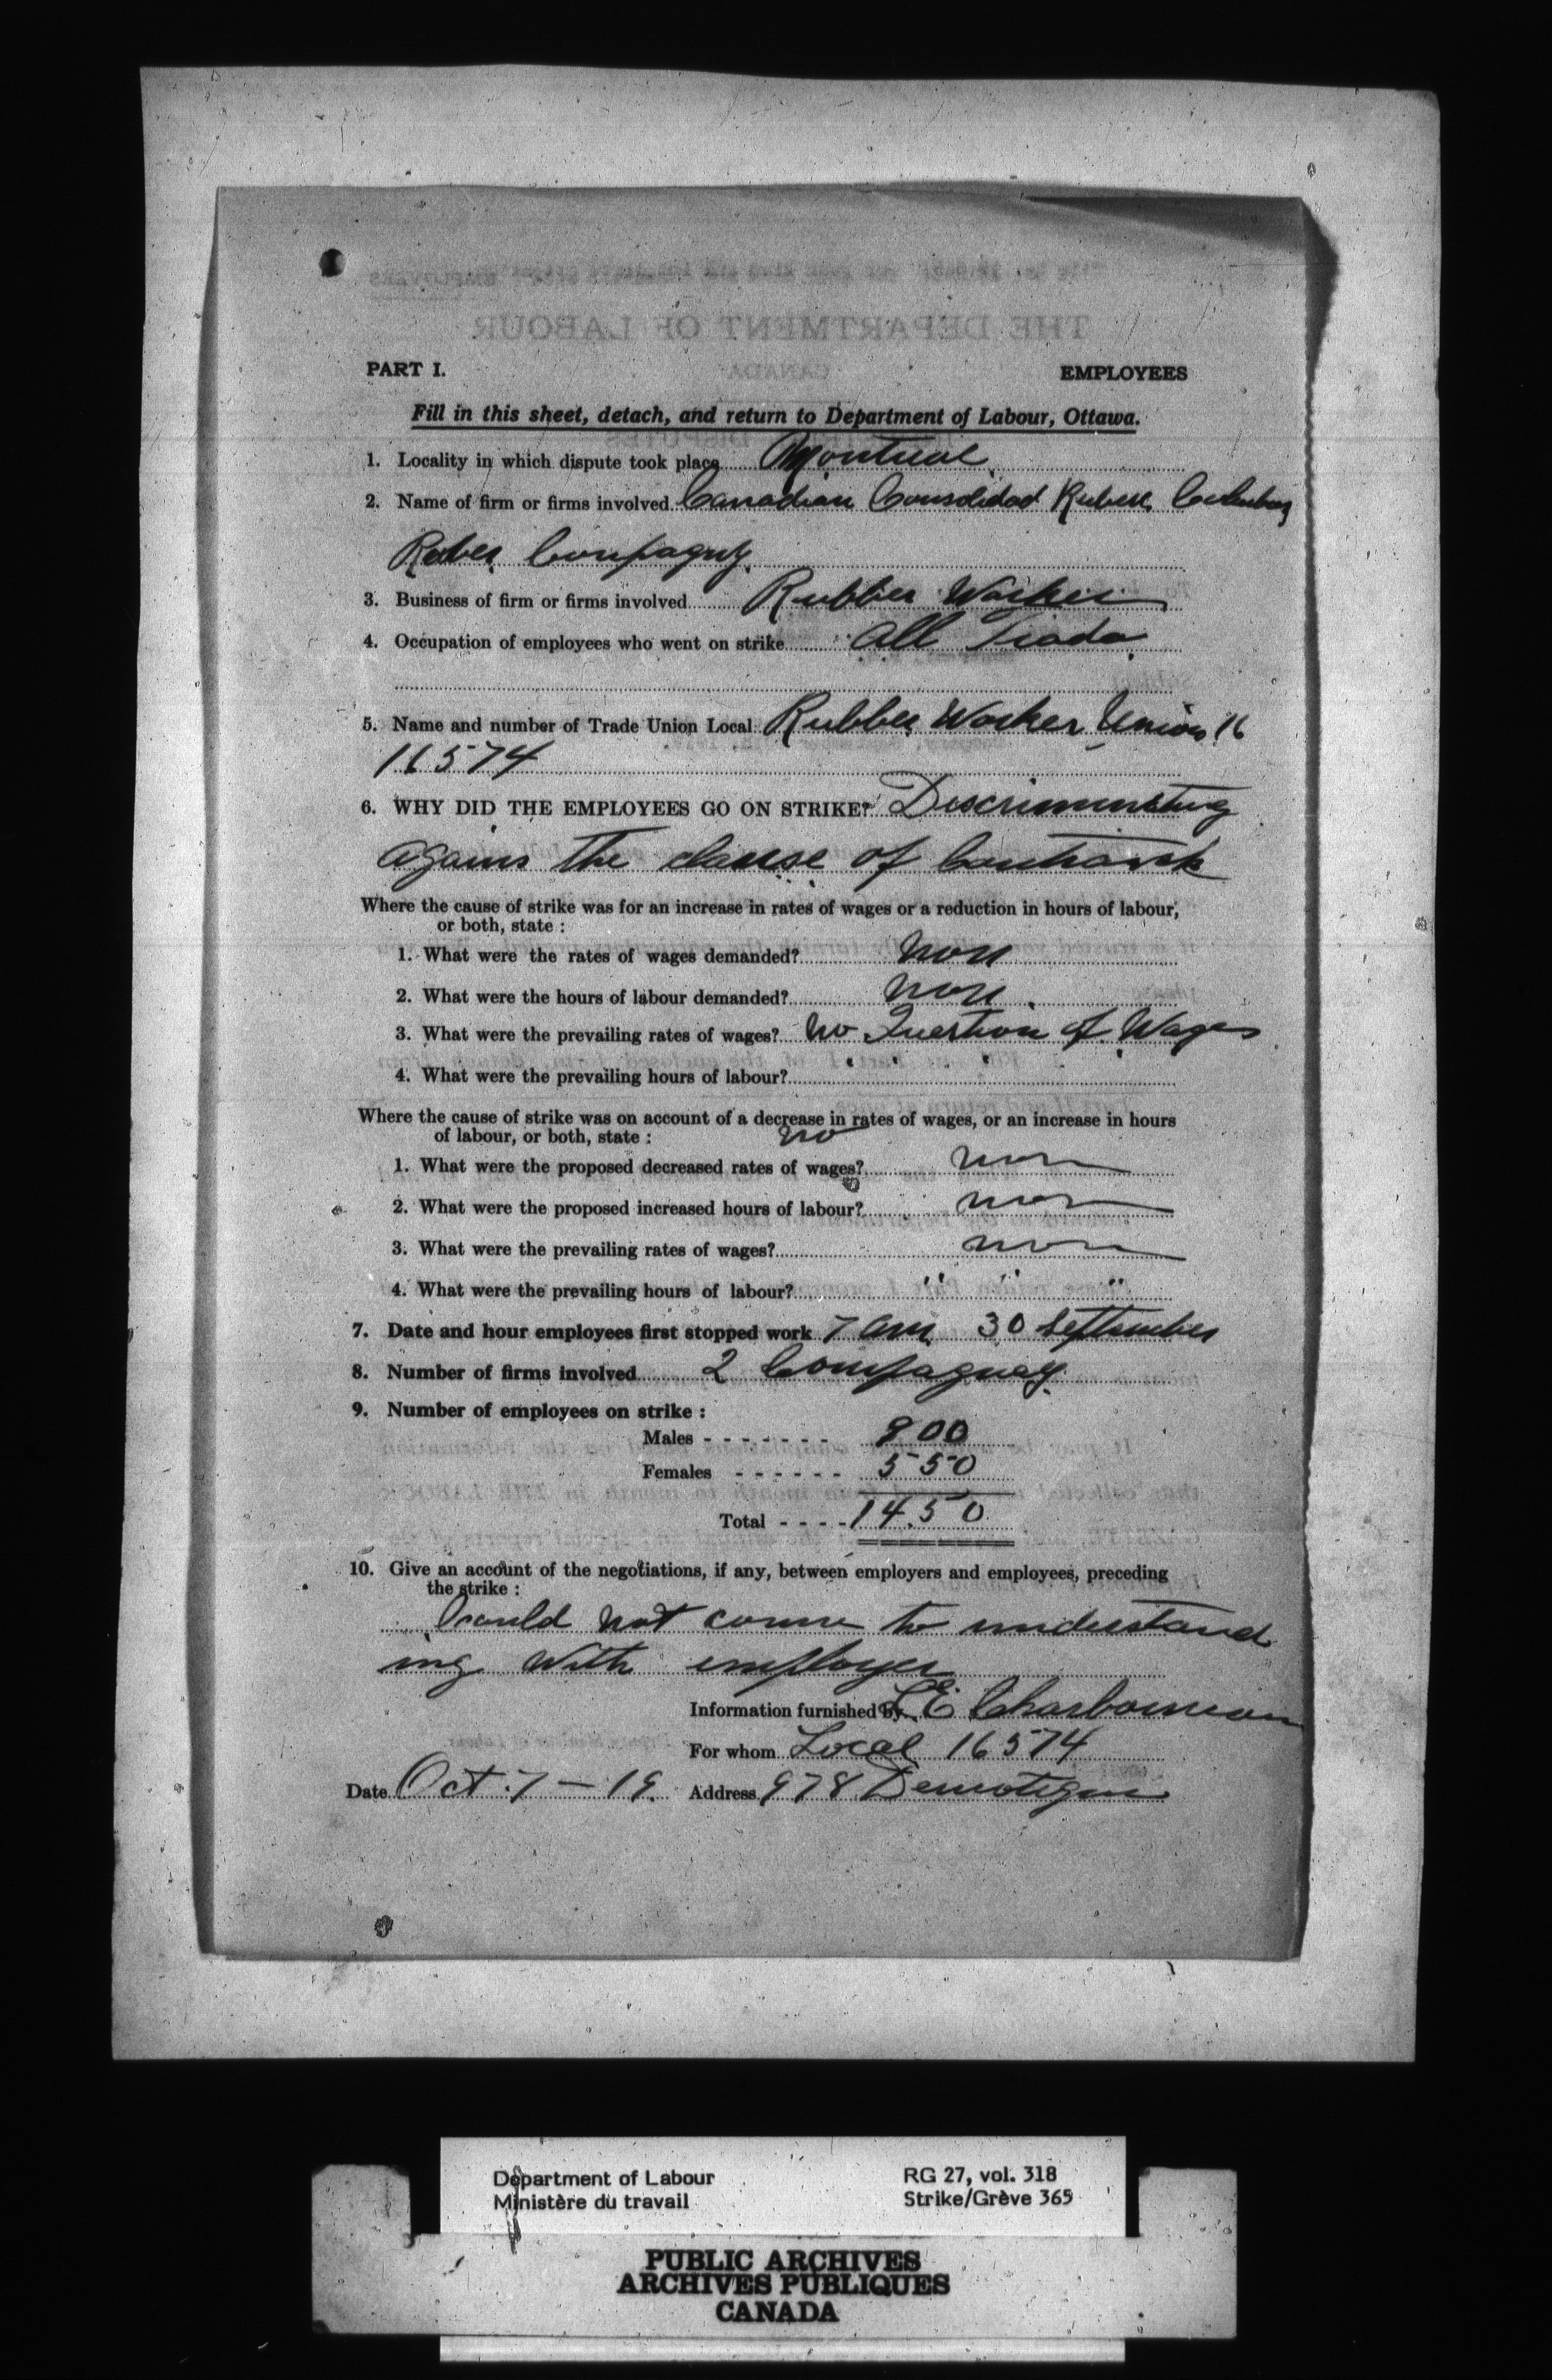 PART I.
EMPLOYEES
Fill in this sheet, detach, and return to Department of Labour, Ottawa.
1. Locality in which dispute took place Montreal
2. Name of firm or firms involved Canadian Consolidad Ruber,
Ruber Compagny.
3. Business of firm or firms involved Rubber Worker
4. Occupation of employees who went on strike All Trada
5. Name and number of Trade Union Local Rubber Worker Union 16
16574
6. WHY DID THE EMPLOYEES GO ON STRIKE? Descriminating
agains the clause of
Where the cause of strike was for an increase in rates of wages or a reduction in hours of labour,
or both, state :
1. What were the rates of wages demanded? non
2. What were the hours of labour demanded? non
3. What were the prevailing rates of wages? no Question of Wages
4. What were the prevailing hours of labour? " " " "
Where the cause of strike was on account of a decrease in rates of wages, or an increase in hours
of labour, or both, state : no
1. What were the proposed decreased rates of wages? non
2. What were the proposed increased hours of labour? non
3. What were the prevailing rates of wages? non
4. What were the prevailing hours of labour? " " "
7. Date and hour employees first stopped work 7 am 30 September
8. Number of firms involved 2 Compagnay
9. Number of employees on strike :
Males - - - - - - - 900
Females - - - - - - 550
Total - - - - 14.50
10. Give an account of the negotiations, if any, between employers and employees, preceding
the strike :
Could not come to understand
ing with employer
Information furnished by L E Charbonneau
For whom Local 16574
Date Oct. 7 - 19. Address 978
Department of Labour
Ministère du travail
RG 27, vol. 318
Strike/Grève 365
PUBLIC ARCHIVES
ARCHIVES PUBLIQUES
CANADA